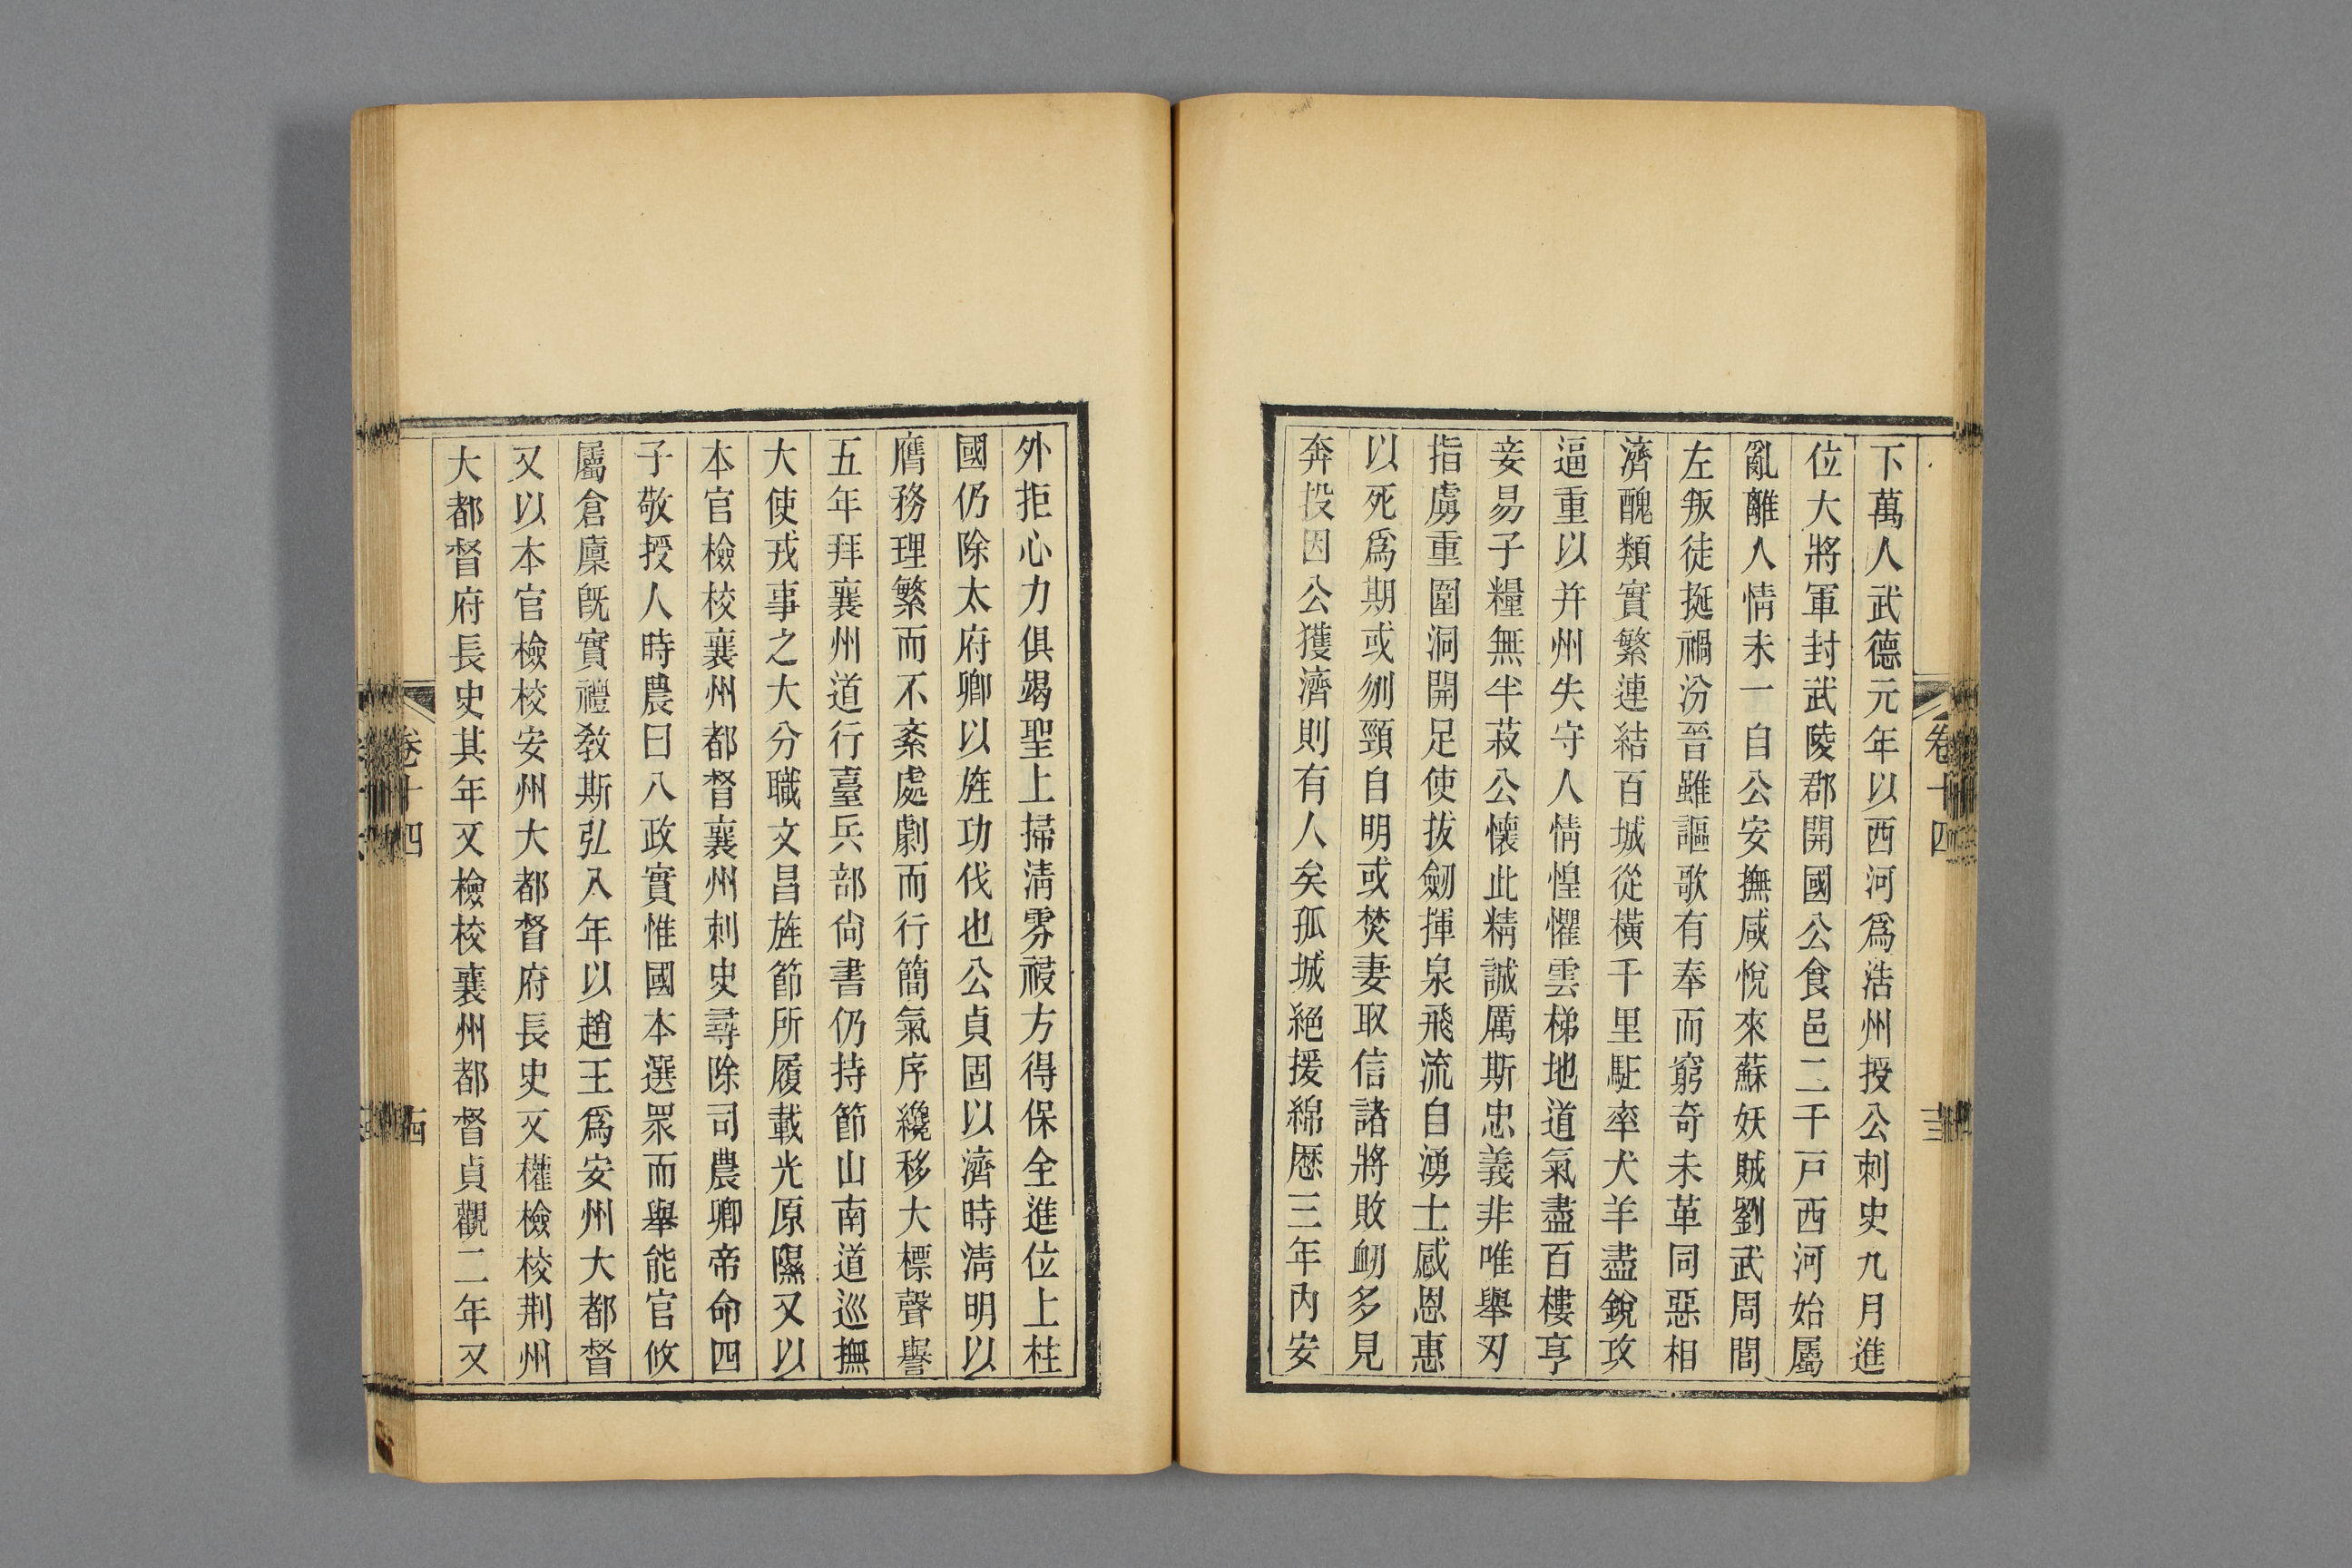 下萬人武德元年以西河爲浩州授公刺史九月進
位大將軍封武陵郡開國公食邑二千戸西河始屬
亂離人情未一自公安撫咸悅來蘇妖賊劉武周間
左叛徒挻禍汾晉雖謳歌有奉而窮奇未革同惡相
濟醜類實繁連結百城從橫千里駈率犬羊盡銳攻
逼重以并州失守人情惶懼雲梯地道氣盡百樓亨
妾易子糧無半菽公懷此精誠厲斯忠義非唯舉刃
指虜重圍洞開足使拔劒揮泉飛流自湧士感恩惠
以死爲期或刎頸自明或焚妻取信諸將敗衂多見
奔投因公獲濟則有人矣孤城絕援綿歷三年內安
卷十四
十三
外拒心力俱竭聖上掃淸雰祲方得保全進位上柱
國仍除太府卿以旌功伐也公貞固以濟時淸明以
膺務理繁而不紊處劇而行簡氣序纔移大標聲譽
五年拜襄州道行臺兵部尙書仍持節山南道巡撫
大使戎事之大分職文昌旌節所履載光原隰又以
本官檢校襄州都督襄州刺史尋除司農卿帝命四
子敬授人時農曰八政實惟國本選眾而舉能官攸
屬倉廩旣實禮敎斯弘八年以趙王爲安州大都督
又以本官檢校安州大都督府長史又權檢校荆州
大都督府長史其年又檢校襄州都督貞觀二年又
卷十四